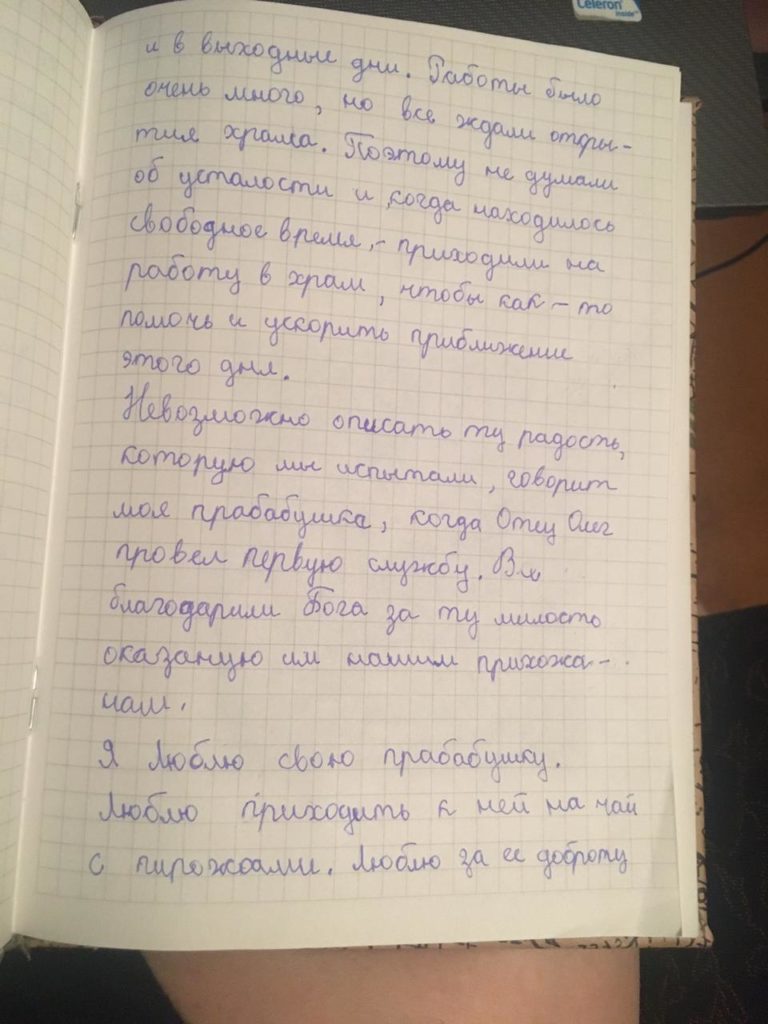 Celeron
inside
и в выходные дни. Работы было
очень много, но все ждали откры-
тия храма. Поэтому не думали
об усталости и, когда находилось
свободное время, - приходили на
работу в храм, чтобы как-то
помочь и ускорить приближение
этого дня.
Невозможно описать ту радость,
которую мы испытали, говорит
моя прабабушка, когда Отец Олег
провел первую службу. Все
благодарили Бога за ту милость
оказаную им нашим прихожа-
нам.
Я люблю свою прабабушку.
Люблю приходить к ней на чай
с пирожками. Люблю за ее доброту